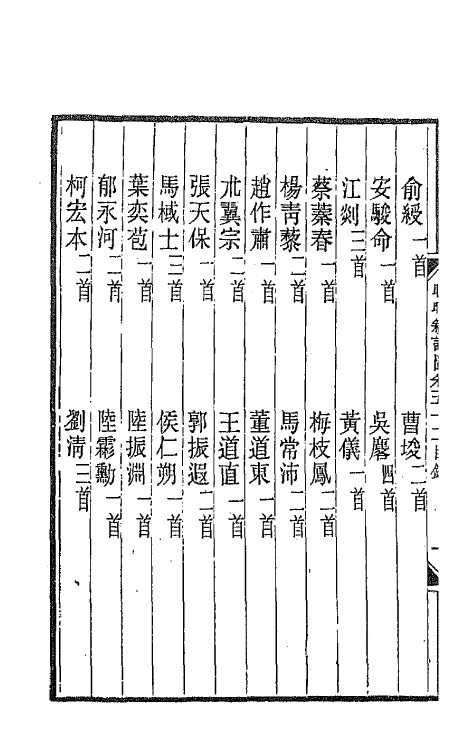 俞綬一首　曹埈二首
安駿命一首　吳麐四首
江剡三首　黃儀一首
蔡蓁春一首　梅枝鳳二首
楊靑藜二首　馬常沛二首
趙作肅一首　董道東一首
朮翼宗二首　王道直一首
張天保一首　郭振遐二首
馬棫士三首　侯仁朔一首
葉奕苞一首　陸振淵一首
郁永河二首　陸霦勳一首
柯宏本二首　劉淸三首